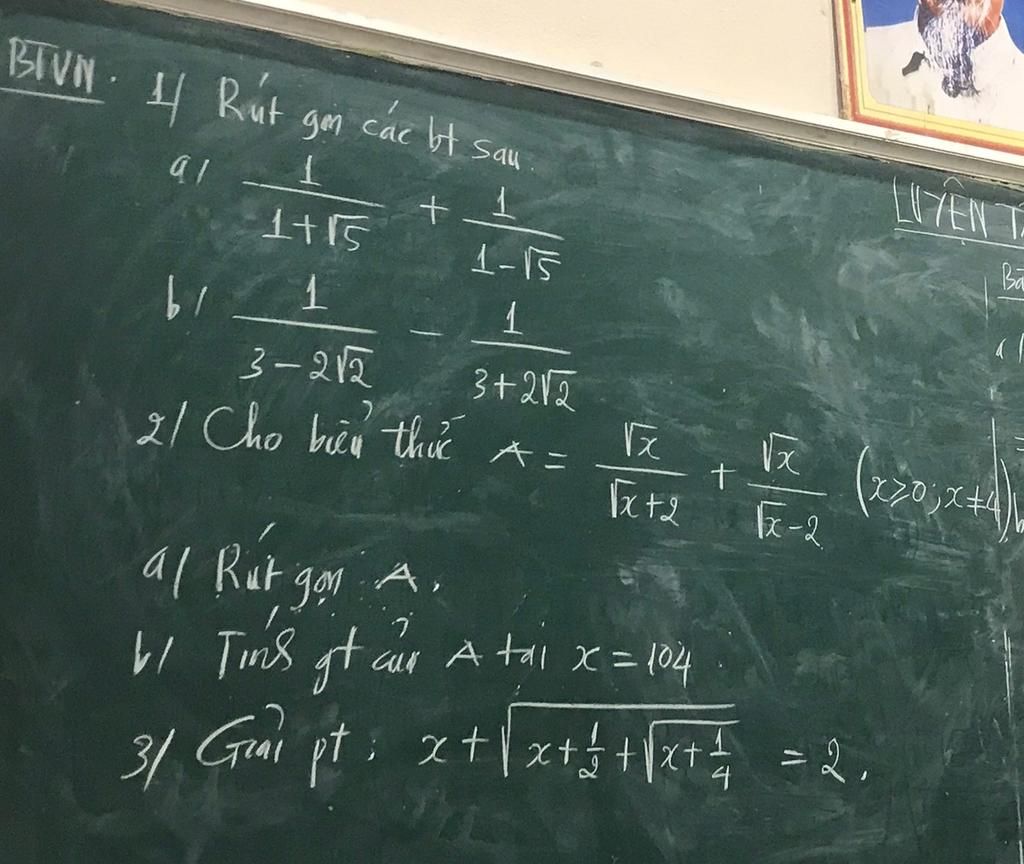 BTVN. 1/ Rút gọn các bt sau.
a/ 1/(1+√5) + 1/(1-√5)
b/ 1/(3-2√2) - 1/(3+2√2)
2/ Cho biểu thức A = √x/(√x+2) + √x/(√x-2) (x≥0; x≠4)
a/ Rút gọn A.
b/ Tính gt của A tại x = 104
3/ Giải pt: x + √(x + 1/2 + √(x + 1/4)) = 2.
LUYỆN T
a/
b